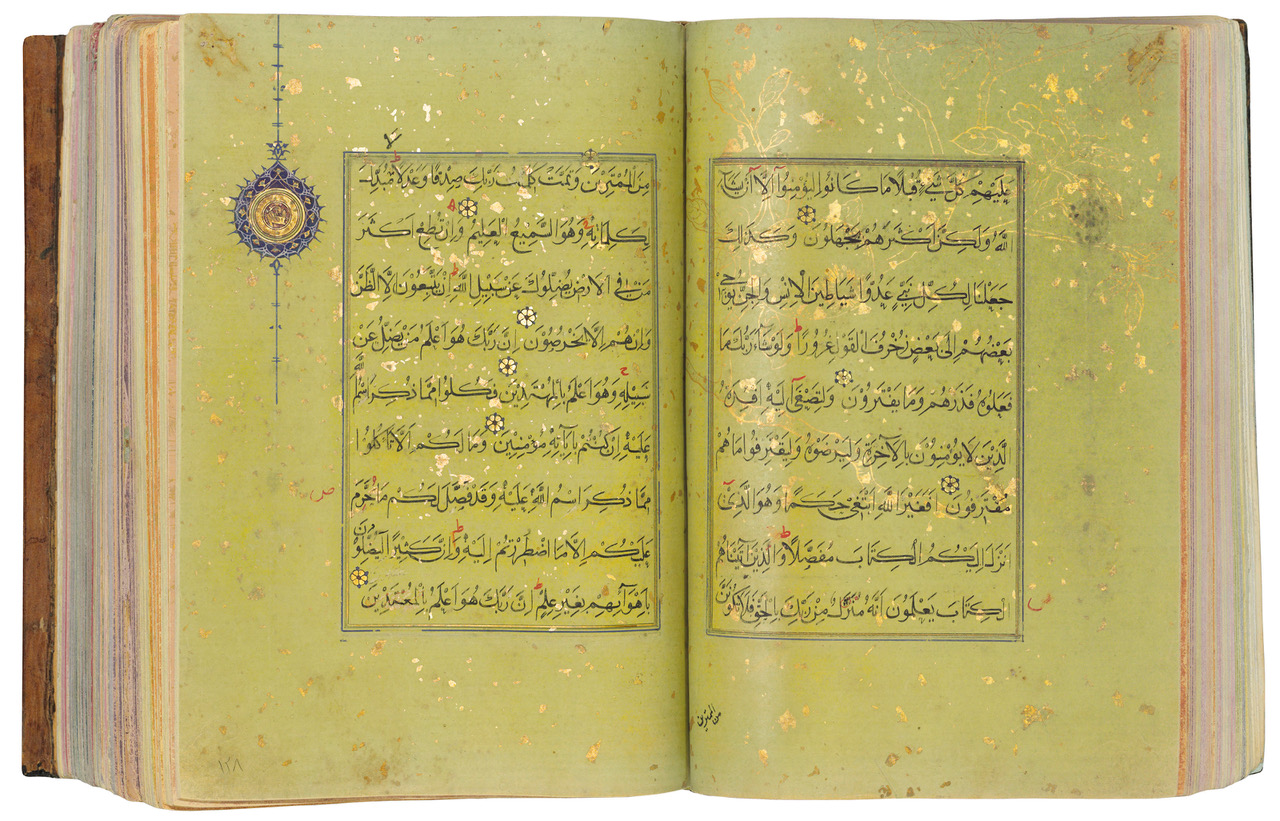 عَلَيْهِمْ كُلَّ شَيْءٍ قُبُلًا مَا كَانُوا لِيُؤْمِنُوا إِلَّا أَنْ يَشَاءَ
اللَّهُ وَلَكِنَّ أَكْثَرَهُمْ يَجْهَلُونَ وَكَذَلِكَ
جَعَلْنَا لِكُلِّ نَبِيٍّ عَدُوًّا شَيَاطِينَ الْإِنْسِ وَالْجِنِّ يُوحِي
بَعْضُهُمْ إِلَى بَعْضٍ زُخْرُفَ الْقَوْلِ غُرُورًا ط وَلَوْ شَاءَ رَبُّكَ مَا
فَعَلُوهُ فَذَرْهُمْ وَمَا يَفْتَرُونَ وَلِتَصْغَى إِلَيْهِ أَفْئِدَةُ
الَّذِينَ لَا يُؤْمِنُونَ بِالْآخِرَةِ وَلِيَرْضَوْهُ وَلِيَقْتَرِفُوا مَا هُمْ
مُقْتَرِفُونَ أَفَغَيْرَ اللَّهِ أَبْتَغِي حَكَمًا وَهُوَ الَّذِي
أَنْزَلَ إِلَيْكُمُ الْكِتَابَ مُفَصَّلًا ط وَالَّذِينَ آتَيْنَاهُمُ
الْكِتَابَ يَعْلَمُونَ أَنَّهُ مُنَزَّلٌ مِنْ رَبِّكَ بِالْحَقِّ فَلَا تَكُونَنَّ
من الممترين
مِنَ الْمُمْتَرِينَ وَتَمَّتْ كَلِمَتُ رَبِّكَ صِدْقًا وَعَدْلًا ط لَا مُبَدِّلَ
لِكَلِمَاتِهِ وَهُوَ السَّمِيعُ الْعَلِيمُ وَإِنْ تُطِعْ أَكْثَرَ
مَنْ فِي الْأَرْضِ يُضِلُّوكَ عَنْ سَبِيلِ اللَّهِ ط إِنْ يَتَّبِعُونَ إِلَّا الظَّنَّ
وَإِنْ هُمْ إِلَّا يَخْرُصُونَ إِنَّ رَبَّكَ هُوَ أَعْلَمُ مَنْ يَضِلُّ عَنْ
سَبِيلِهِ وَهُوَ أَعْلَمُ بِالْمُهْتَدِينَ فَكُلُوا مِمَّا ذُكِرَ اسْمُ اللَّهِ
عَلَيْهِ إِنْ كُنْتُمْ بِآيَاتِهِ مُؤْمِنِينَ وَمَا لَكُمْ أَلَّا تَأْكُلُوا
مِمَّا ذُكِرَ اسْمُ اللَّهِ عَلَيْهِ وَقَدْ فَصَّلَ لَكُمْ مَا حَرَّمَ
عَلَيْكُمْ إِلَّا مَا اضْطُرِرْتُمْ إِلَيْهِ ط وَإِنَّ كَثِيرًا لَيُضِلُّونَ
بِأَهْوَائِهِمْ بِغَيْرِ عِلْمٍ ط إِنَّ رَبَّكَ هُوَ أَعْلَمُ بِالْمُعْتَدِينَ
١٢٨